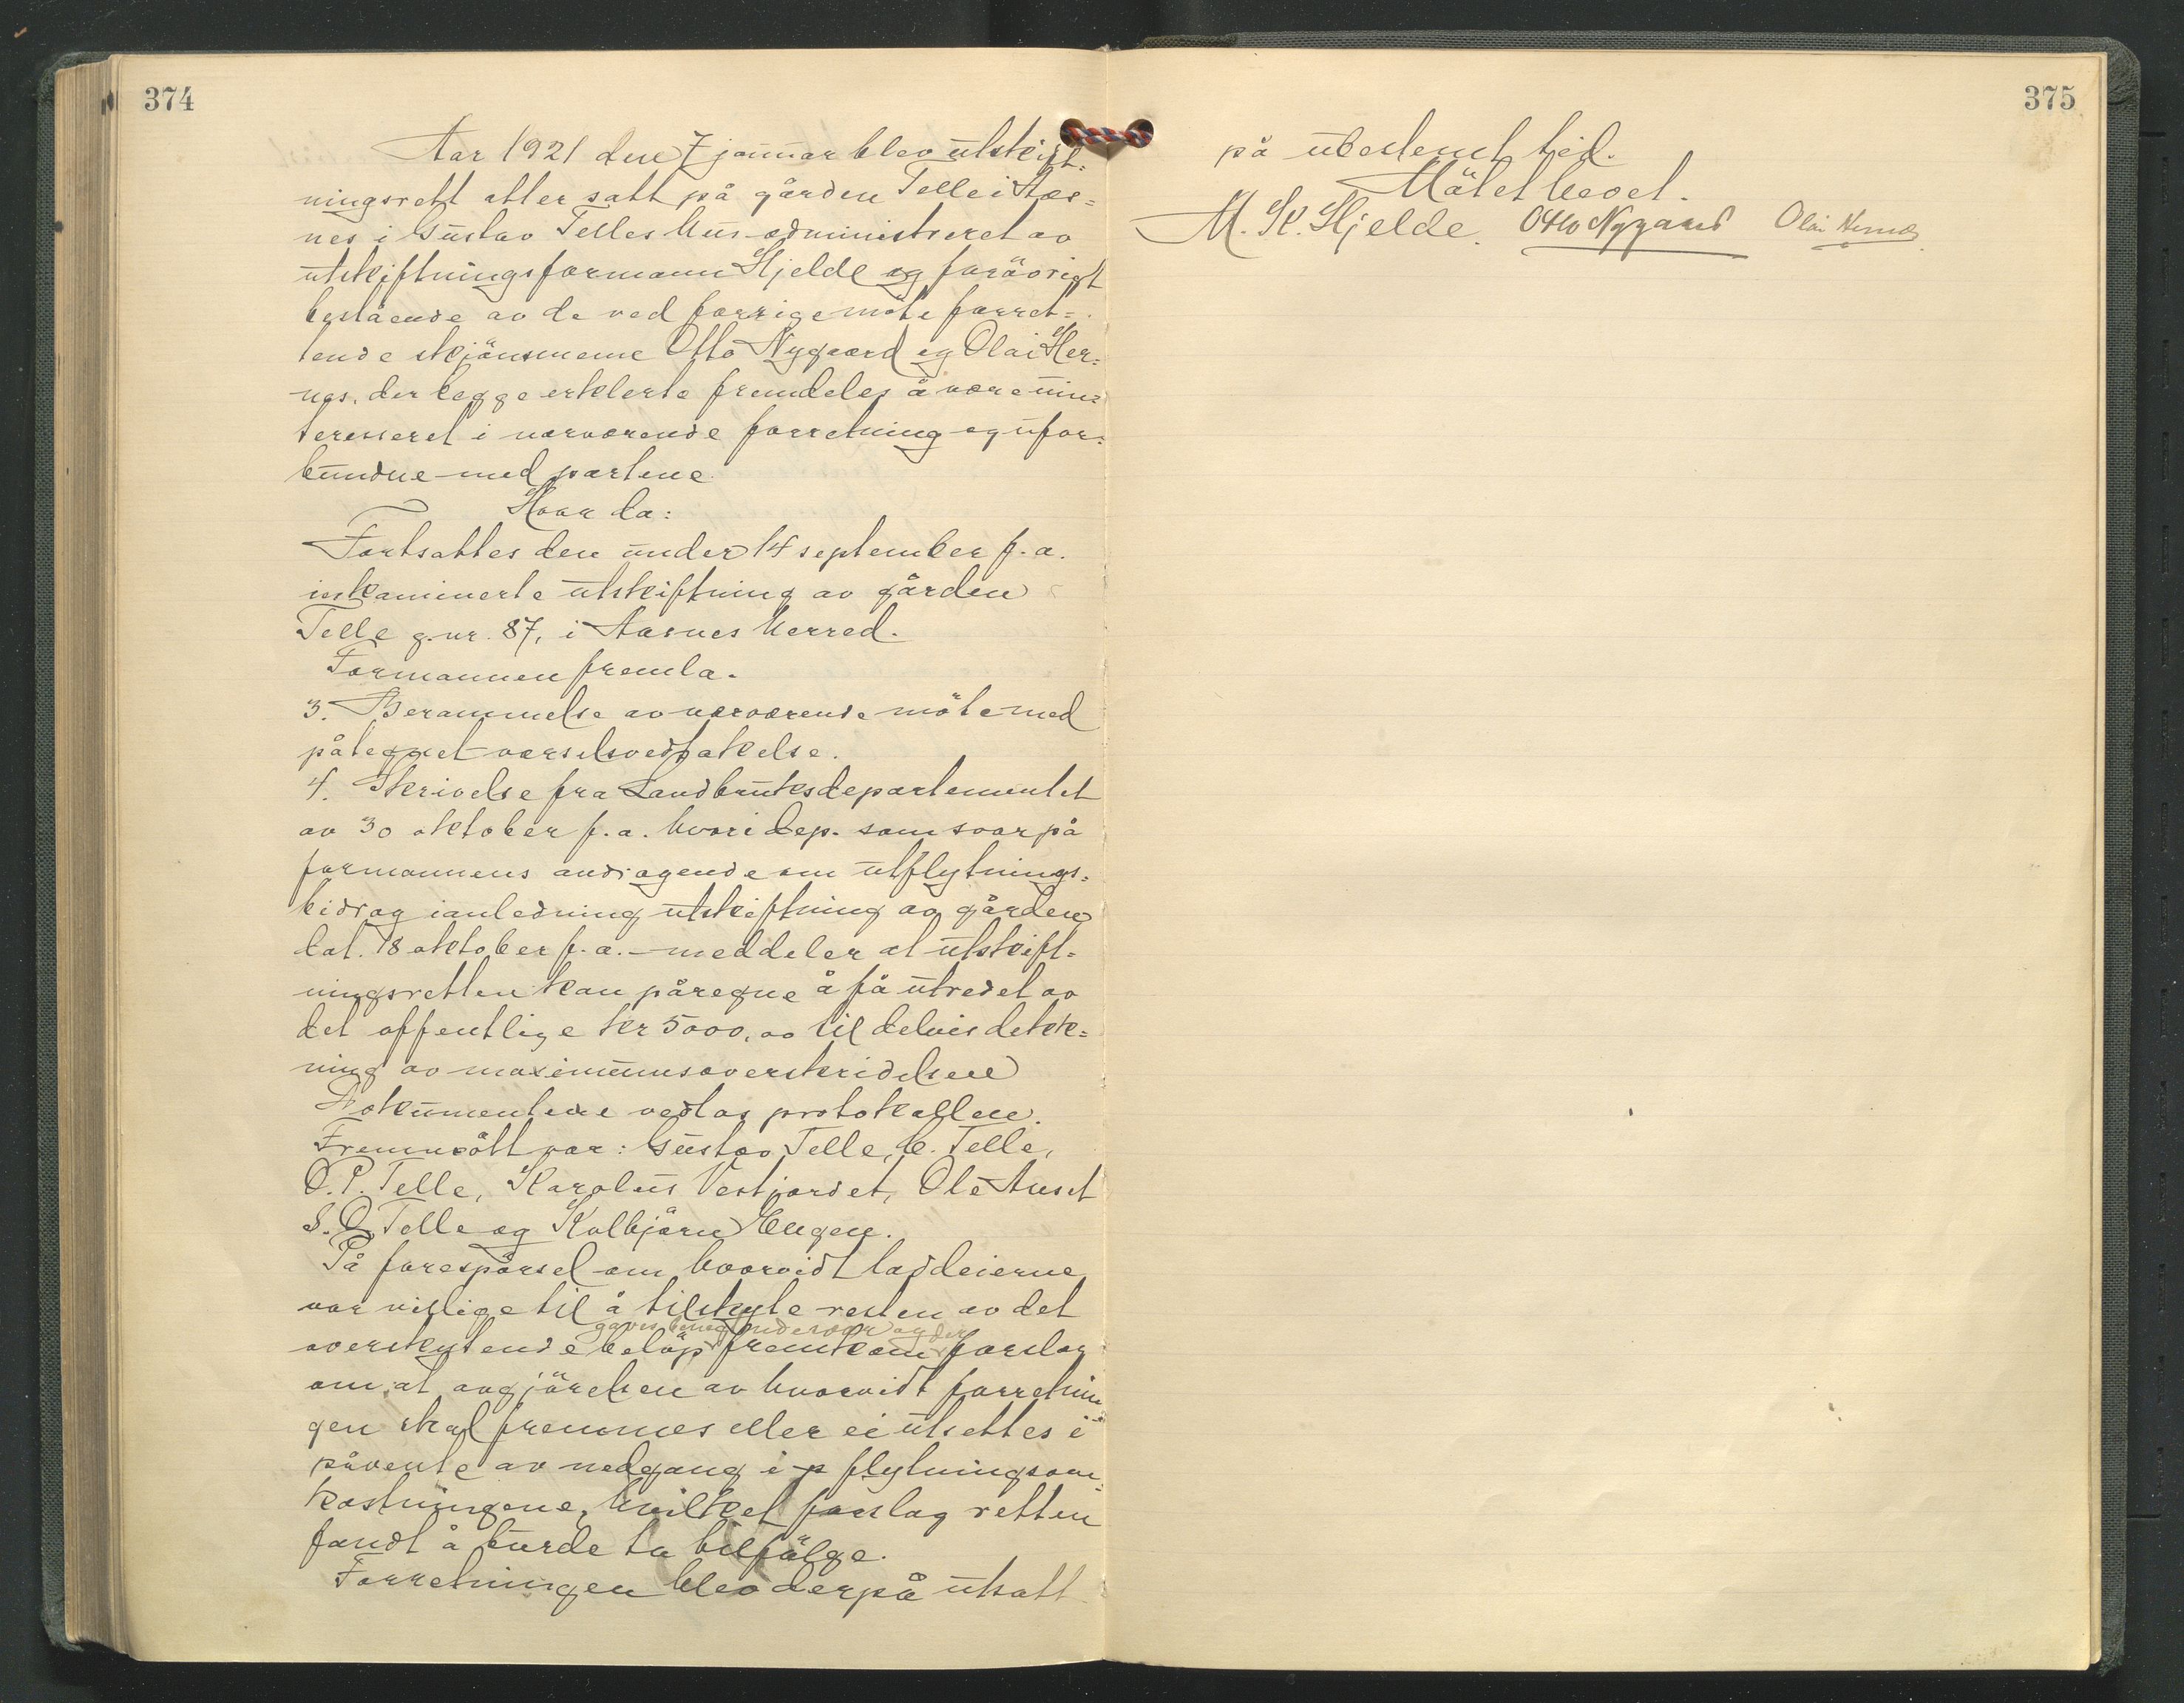 374
Aar 1921 den 7 januar blev utskift=
ningsrett atter satt på gården Telle i Aas=
nes i Gustav Telles hus administreret av
utskiftningsformann Hjelde og forövrigt
bestående av de ved forrige möte forret=
tende skjönsmenn Otto Nygaard og Olai Her=
nes, der begge erklerte fremdeles å være uin=
teresseret i nærværende forretning og ufor=
bundne med partene
Hvor da:
Fortsattes den under 14 september f. a.
inkaminerte utskiftning av gården
Telle g.nr. 87, i Aasnes herred.
Formannen fremla.
3. Berammelse av nærværende möte med
påtegnet varselsvedtakelse.
4. Skrivelse fra Landbruksdepartementet
av 30 oktober f. a. hvori dep. som svar på
formannens andragende om utflytnings=
bidrag ianledning utskiftning av gården
dat. 18 oktober f. a. - meddeler at utskift=
ningsretten kan påregne å få utredet av
det offentlige kr 5000,00 til delvis dekk=
ning av maximumsoverskridelsen
Dokumentene vedlas protokollen.
Fremmött var: Gustav Telle, E. Telle,
O. P. Telle, Karolus Vestjordet, Ole Auset
S. O. Telle og Kolbjörn Engen.
På forespörsel om hvorvidt loddeierne
var villige til å tilskyte resten av det
gaves benegtende svar og der
overskytende belöp fremkom forslag
om at avgjörelsen av hvorvidt forretnin
gen skal fremmes eller ei utsettes i
påvente av nedgang i p flytningsom=
kostningene, hvilket forslag retten
fandt å burde ta tilfölge.
Forretningen blev derpå utsatt
375
på ubestemt tid.
Mötet hevet.
M. K. Hjelde. Otto Nygaard Olai Hernes